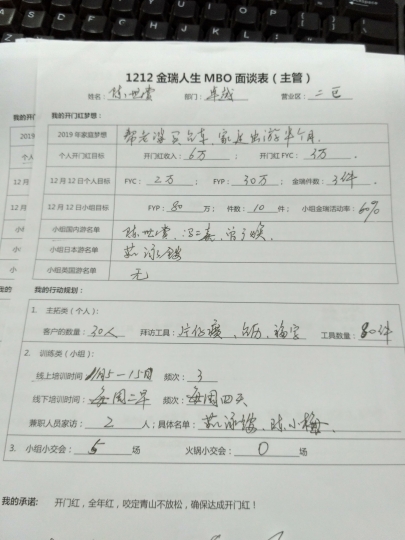 1212金瑞人生MBO面谈表（主管）
姓名： 陈世 部门： 卓越 营业区： 二区
我的开门红梦想：
2019年家庭梦想 帮老婆买台车，家庭出游半个月.
个人开门红目标 开门红收入：6万； 开门红FYC：3万.
12月12日个人目标 FYC：2万； FYP：30万； 金瑞件数：3件.
12月12日小组目标 FYP：80万； 件数：10件； 小组金瑞活动率：60%
小组国内游名单 陈世
小组日本游名单
小组美国游名单 无
我的行动规划：
1. 主拓类（个人）：
客户的数量：30人 拜访工具： 工具数量：80件
2. 训练类（小组）：
线上培训时间 5—15日 频次：3
线下培训时间：每周二早 频次：每周四天
兼职人员家访：2人；具体名单： 陈小梅.
3. 小组小交会：5场 火锅小交会：0场
我的承诺： 开门红，全年红，咬定青山不放松，确保达成开门红！